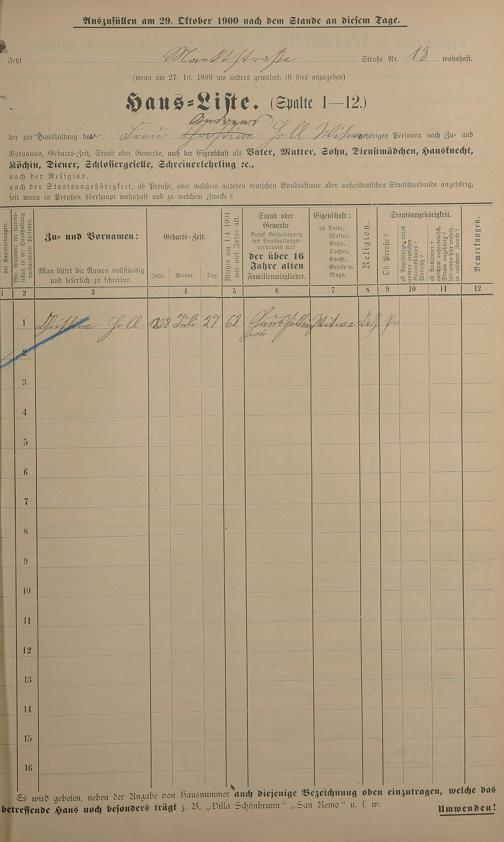 Auszufüllen am 29. Oktober 1900 nach dem Stande an diesem Tage.
Jetzt Marktstraße Straße Nr. 13 wohnhaft.
(wenn am 27. 10. 1899 wo anders gewohnt, ist dies anzugeben)
Haus-Liste. (Spalte 1—12.)
Andreas
der zur Haushaltung der Frau Christine Holl Witwe gehörigen Personen nach Zu- und
Vornamen, Geburts-Zeit, Stand oder Gewerbe, nach der Eigenschaft als Vater, Mutter, Sohn, Dienstmädchen, Hausknecht,
Köchin, Diener, Schlossergeselle, Schreinerlehrling ꝛc.,
nach der Religion,
nach der Staatsangehörigkeit, ob Preuße, oder welchem anderen deutschen Bundesstaate oder außerdeutschen Staatsverbande angehörig,
seit wann in Preußen überhaupt wohnhaft und zu welchem Zwecke?
Zu- und Vornamen:
Man bittet die Namen vollständig
und leserlich zu schreiben
Geburts-Zeit.
Jahr. Monat. Tag.
Stand oder
Gewerbe
der über 16
Jahre alten
Familienmitglieder.
Eigenschaft:
ob Vater,
Mutter,
Sohn,
Tochter,
Knecht,
Geselle ꝛc.
Magd.
Religion.
Staatsangehörigkeit.
Ob Preuße?
Bemerkungen.
1 2 3 4 5 6 7 8 9 10 11 12
1 Christine Holl 1838 Juli 27 62 Witwe
2
3
4
5
6
7
8
9
10
11
12
13
14
15
16
Es wird gebeten, neben der Angabe von Hausnummer auch diejenige Bezeichnung oben einzutragen, welche das
betreffende Haus noch besonders trägt z. B. „Villa Schönbrunn" „San Remo" u. s. w.
Umwenden!